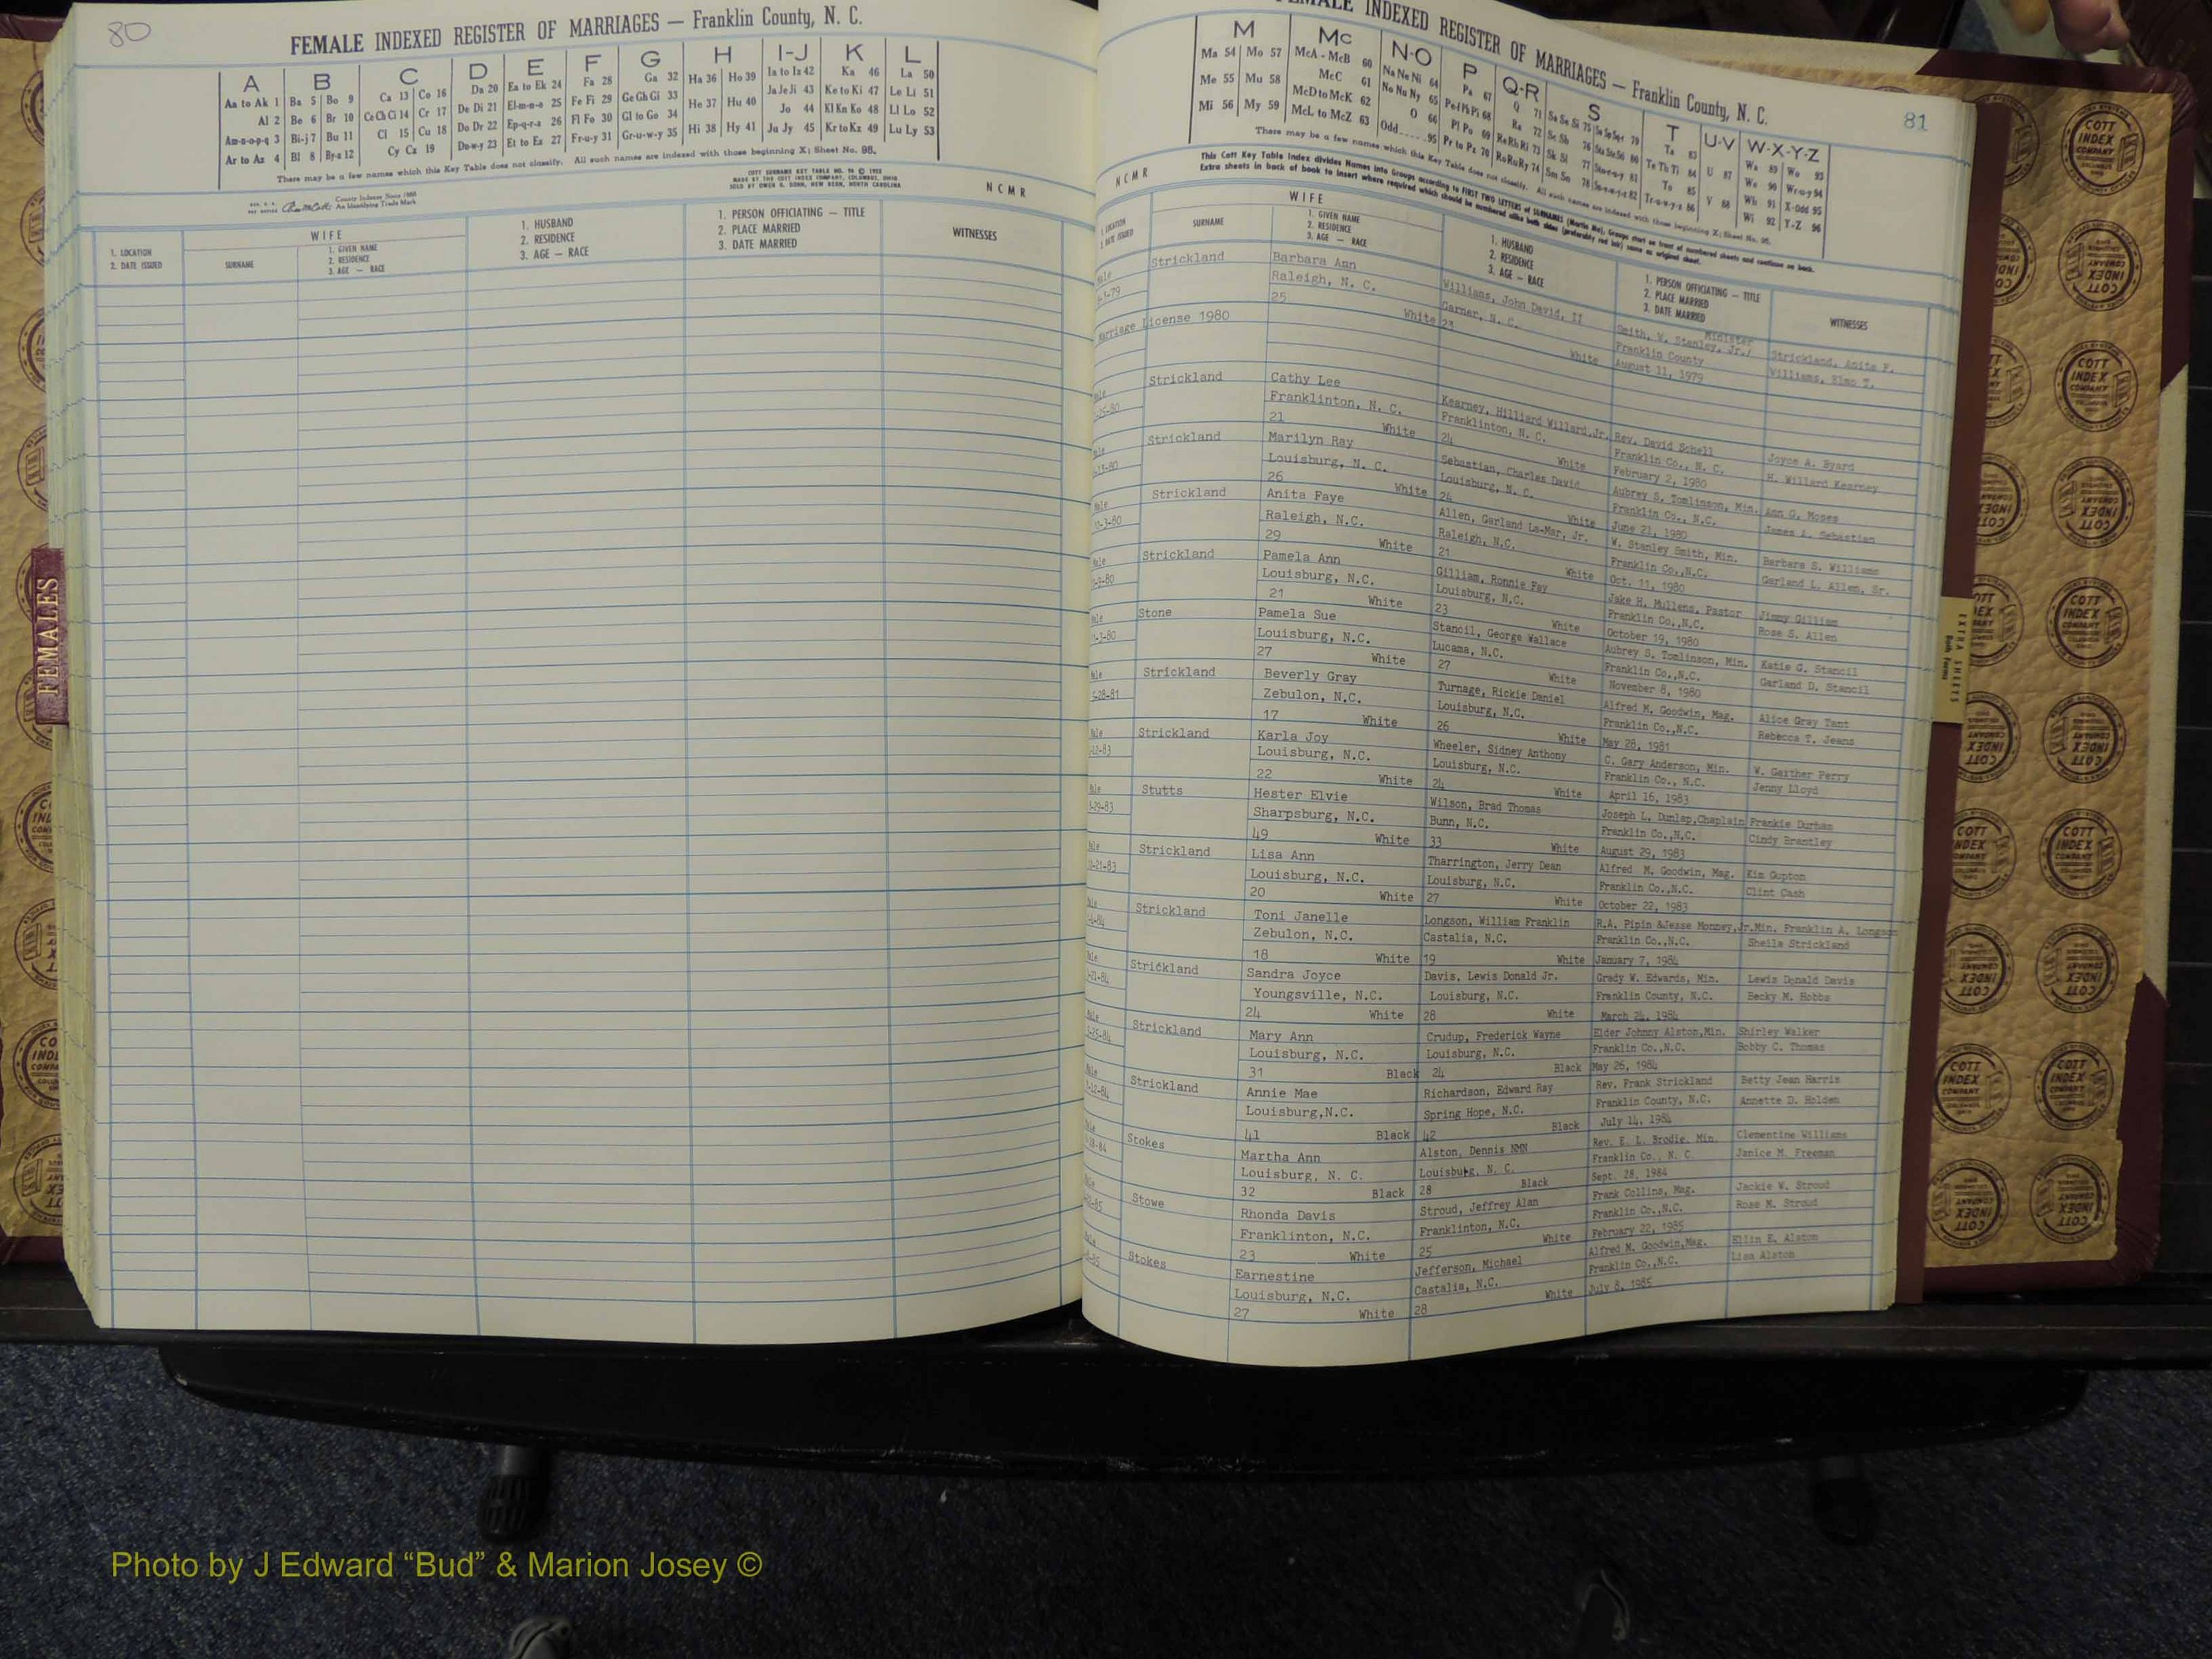 80
FEMALE INDEXED REGISTER OF MARRIAGES — Franklin County, N. C.
A B C D E F G H I-J K L
Aa to Ak 1 Ba 5 Bo 9 Ca 13 Co 16 Da 20 Ea to Ek 24 Fa 28 Ga 32 Ha 36 Ho 39 Ia to Iz 42 Ka 46 La 50
Al 2 Be 6 Br 10 Ce Ch Ci 14 Cr 17 De Di 21 El-m-n-o 25 Fe Fi 29 Ge Gh Gi 33 He 37 Hu 40 Ja Je Ji 43 Ke to Ki 47 Le Li 51
Am-n-o-p-q 3 Bi-j 7 Bu 11 Cl 15 Cu 18 Do Dr 22 Ep-q-r-s 26 Fl Fo 30 Gl to Go 34 Jo 44 Kl Kn Ko 48 Ll Lo 52
Ar to Az 4 Bl 8 By-z 12 Cy Cz 19 Du-w-y 23 Et to Ez 27 Fr-u-y 31 Gr-u-w-y 35 Hi 38 Hy 41 Ju Jy 45 Kr to Kz 49 Lu Ly 53
There may be a few names which this Key Table does not classify. All such names are indexed with those beginning X; Sheet No. 95.
County Indexes Since 1888
An Identifying Trade Mark
MADE BY THE COTT INDEX COMPANY, COLUMBUS, OHIO
SOLD BY OWEN G. DUNN, NEW BERN, NORTH CAROLINA
NCMR
1. LOCATION
2. DATE ISSUED
WIFE
SURNAME
1. GIVEN NAME
2. RESIDENCE
3. AGE — RACE
1. HUSBAND
2. RESIDENCE
3. AGE — RACE
1. PERSON OFFICIATING — TITLE
2. PLACE MARRIED
3. DATE MARRIED
WITNESSES
FEMALES
FEMALE INDEXED REGISTER OF MARRIAGES — Franklin County, N. C.
81
M Mc N-O P Q-R S T U-V W-X-Y-Z
Ma 54 Mo 57 McA - McB 60 Na Ne Ni 64 Pa 67 Q 71
Me 55 Mu 58 McC 61 No Nu Ny 65 Pe-f Ph Pi 68 Ra 72
Mi 56 My 59 McD to McK 62 O 66 Pl Po 69 Re Rh Ri 73
McL to McZ 63 Odd 95 Pr to Pz 70 Ro Ru Ry 74
There may be a few names which this Key Table does not classify. All such names are indexed with those beginning X; Sheet No. 95.
This Cott Key Table Index divides Names into Groups according to FIRST TWO LETTERS of SURNAMES (Martin Ma). Groups start on front of numbered sheets and continue on back.
Extra sheets in back of book to insert where required which should be numbered alike both sides (preferably red ink) same as original sheet.
NCMR
WIFE
SURNAME
1. GIVEN NAME
2. RESIDENCE
3. AGE — RACE
1. HUSBAND
2. RESIDENCE
3. AGE — RACE
1. PERSON OFFICIATING — TITLE
2. PLACE MARRIED
3. DATE MARRIED
WITNESSES
Strickland Barbara Ann Williams, John David, II Smith, W. Stanley, Jr./ Minister Strickland, Anita F.
Raleigh, N. C. Garner, N. C. Franklin County
25 White 23 White August 11, 1979
Marriage License 1980
Strickland Cathy Lee Kearney, Hilliard Willard,Jr. Rev. David Schell Joyce A. Byard
Franklinton, N. C. Franklinton, N. C. Franklin Co., N. C. H. Willard Kearney
21 White 24 White February 2, 1980
Strickland Marilyn Ray Sebastian, Charles David Aubrey S. Tomlinson, Min. Ann G. Moses
Louisburg, N. C. Louisburg, N. C. Franklin Co., N.C. James A. Sebastian
26 White 24 White June 21, 1980
Strickland Anita Faye Allen, Garland La-Mar, Jr. W. Stanley Smith, Min. Barbara S. Williams
Raleigh, N.C. Raleigh, N.C. Franklin Co.,N.C. Garland L. Allen, Sr.
29 White 21 White Oct. 11, 1980
Strickland Pamela Ann Gilliam, Ronnie Fay Jake H. Mullens, Pastor Jimmy Gilliam
Louisburg, N.C. Louisburg, N.C. Franklin Co.,N.C. Rose S. Allen
21 White 23 White October 19, 1980
Stone Pamela Sue Stancil, George Wallace Aubrey S. Tomlinson, Min. Katie G. Stancil
Louisburg, N.C. Lucama, N.C. Franklin Co.,N.C. Garland D. Stancil
27 White 27 White November 8, 1980
Strickland Beverly Gray Turnage, Rickie Daniel Alfred M. Goodwin, Mag. Alice Gray Tant
Zebulon, N.C. Louisburg, N.C. Franklin Co.,N.C. Rebecca T. Jeans
17 White 26 White May 28, 1981
Strickland Karla Joy Wheeler, Sidney Anthony C. Gary Anderson, Min. W. Gaither Perry
Louisburg, N.C. Louisburg, N.C. Franklin Co., N.C. Jenny Lloyd
22 White 24 White April 16, 1983
Stutts Hester Elvie Wilson, Brad Thomas Joseph L. Dunlap,Chaplain Frankie Durham
Sharpsburg, N.C. Bunn, N.C. Franklin Co.,N.C. Cindy Brantley
49 White 33 White August 29, 1983
Strickland Lisa Ann Tharrington, Jerry Dean Alfred M. Goodwin, Mag. Kim Gupton
Louisburg, N.C. Louisburg, N.C. Franklin Co.,N.C. Clint Cash
20 White 27 White October 22, 1983
Strickland Toni Janelle Longson, William Franklin R.A. Pipin &Jesse Monney,Jr.Min. Franklin A. Longson
Zebulon, N.C. Castalia, N.C. Franklin Co.,N.C. Sheila Strickland
18 White 19 White January 7, 1984
Strickland Sandra Joyce Davis, Lewis Donald Jr. Grady W. Edwards, Min. Lewis Donald Davis
Youngsville, N.C. Louisburg, N.C. Franklin County, N.C. Becky M. Hobbs
24 White 28 White March 24, 1984
Strickland Mary Ann Crudup, Frederick Wayne Elder Johnny Alston,Min. Shirley Walker
Louisburg, N.C. Louisburg, N.C. Franklin Co.,N.C. Bobby C. Thomas
31 Black 24 Black May 26, 1984
Strickland Annie Mae Richardson, Edward Ray Rev. Frank Strickland Betty Jean Harris
Louisburg,N.C. Spring Hope, N.C. Franklin County, N.C. Annette D. Holden
41 Black 42 Black July 14, 1984
Stokes Martha Ann Alston, Dennis NMN Rev. E. L. Brodie, Min. Clementine Williams
Louisburg, N. C. Louisburg, N. C. Franklin Co., N. C. Janice M. Freeman
32 Black 28 Black Sept. 28, 1984
Stowe Rhonda Davis Stroud, Jeffrey Alan Frank Collins, Mag. Jackie W. Stroud
Franklinton, N.C. Franklinton, N.C. Franklin Co.,N.C. Rose M. Stroud
23 White 25 White February 22, 1985
Stokes Earnestine Jefferson, Michael Alfred M. Goodwin,Mag. Ellin E. Alston
Louisburg, N.C. Castalia, N.C. Franklin Co.,N.C. Lisa Alston
27 White 28 White July 8, 1985
EXTRA SHEETS
COTT
INDEX
COMPANY
Photo by J Edward “Bud” & Marion Josey ©